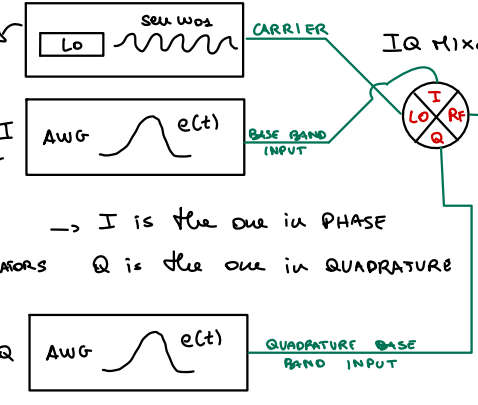 sen ωost
LO
CARRIER
IQ MIX
I
AWG
e(t)
BASE BAND
INPUT
I
LO
RF
Q
→ I is the one in PHASE
ATORS Q is the one in QUADRATURE
Q
AWG
e(t)
QUADRATURE BASE
BAND INPUT